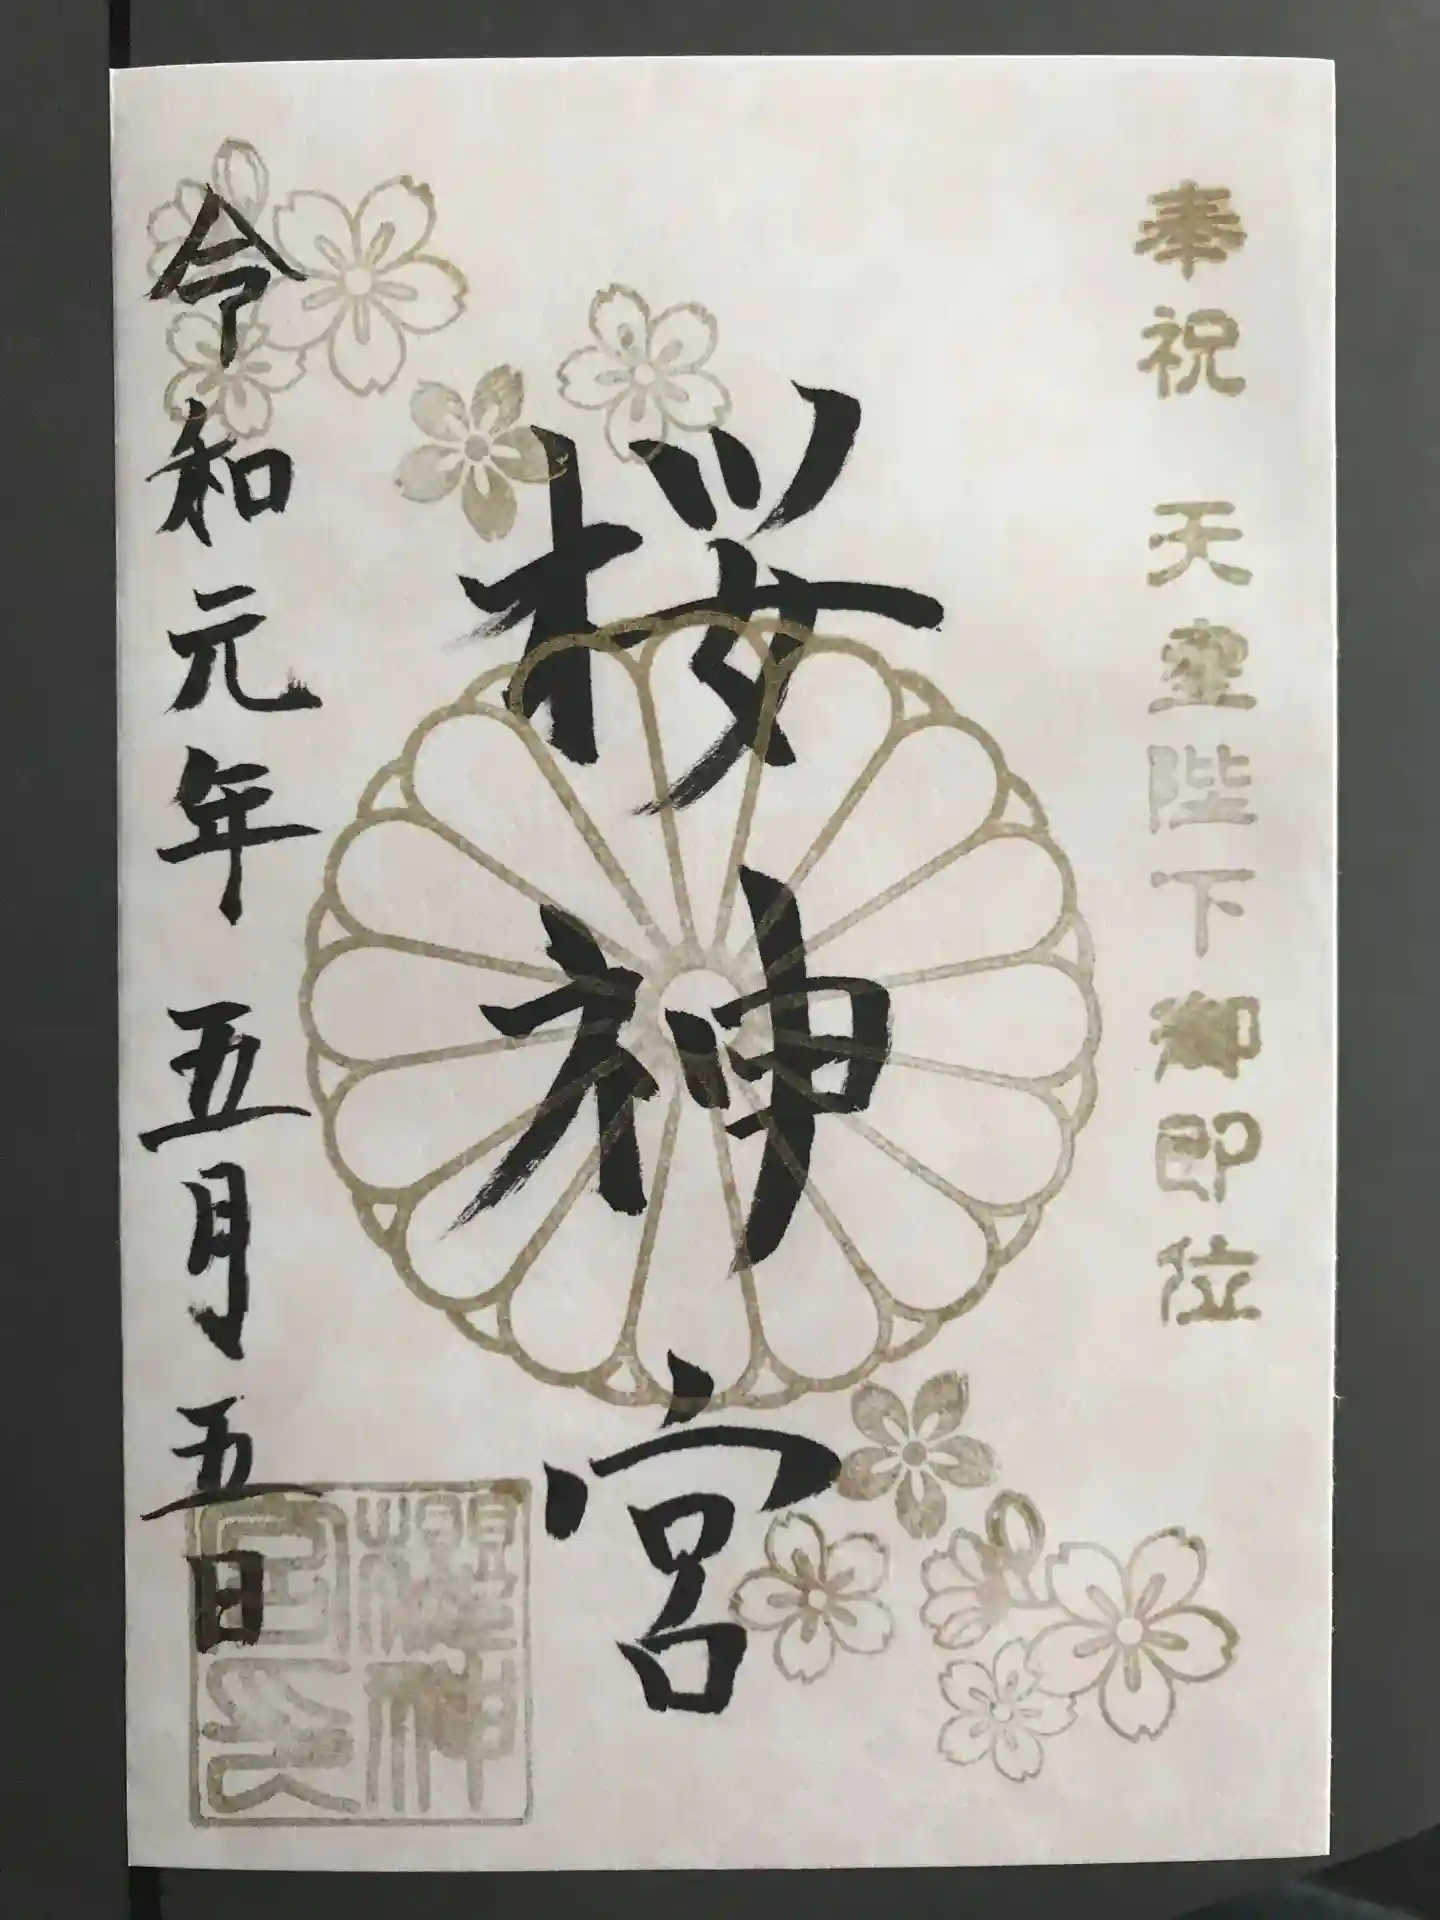 奉祝 天皇陛下御即位
桜神宮
令和元年 五月五日
櫻神
宮之印